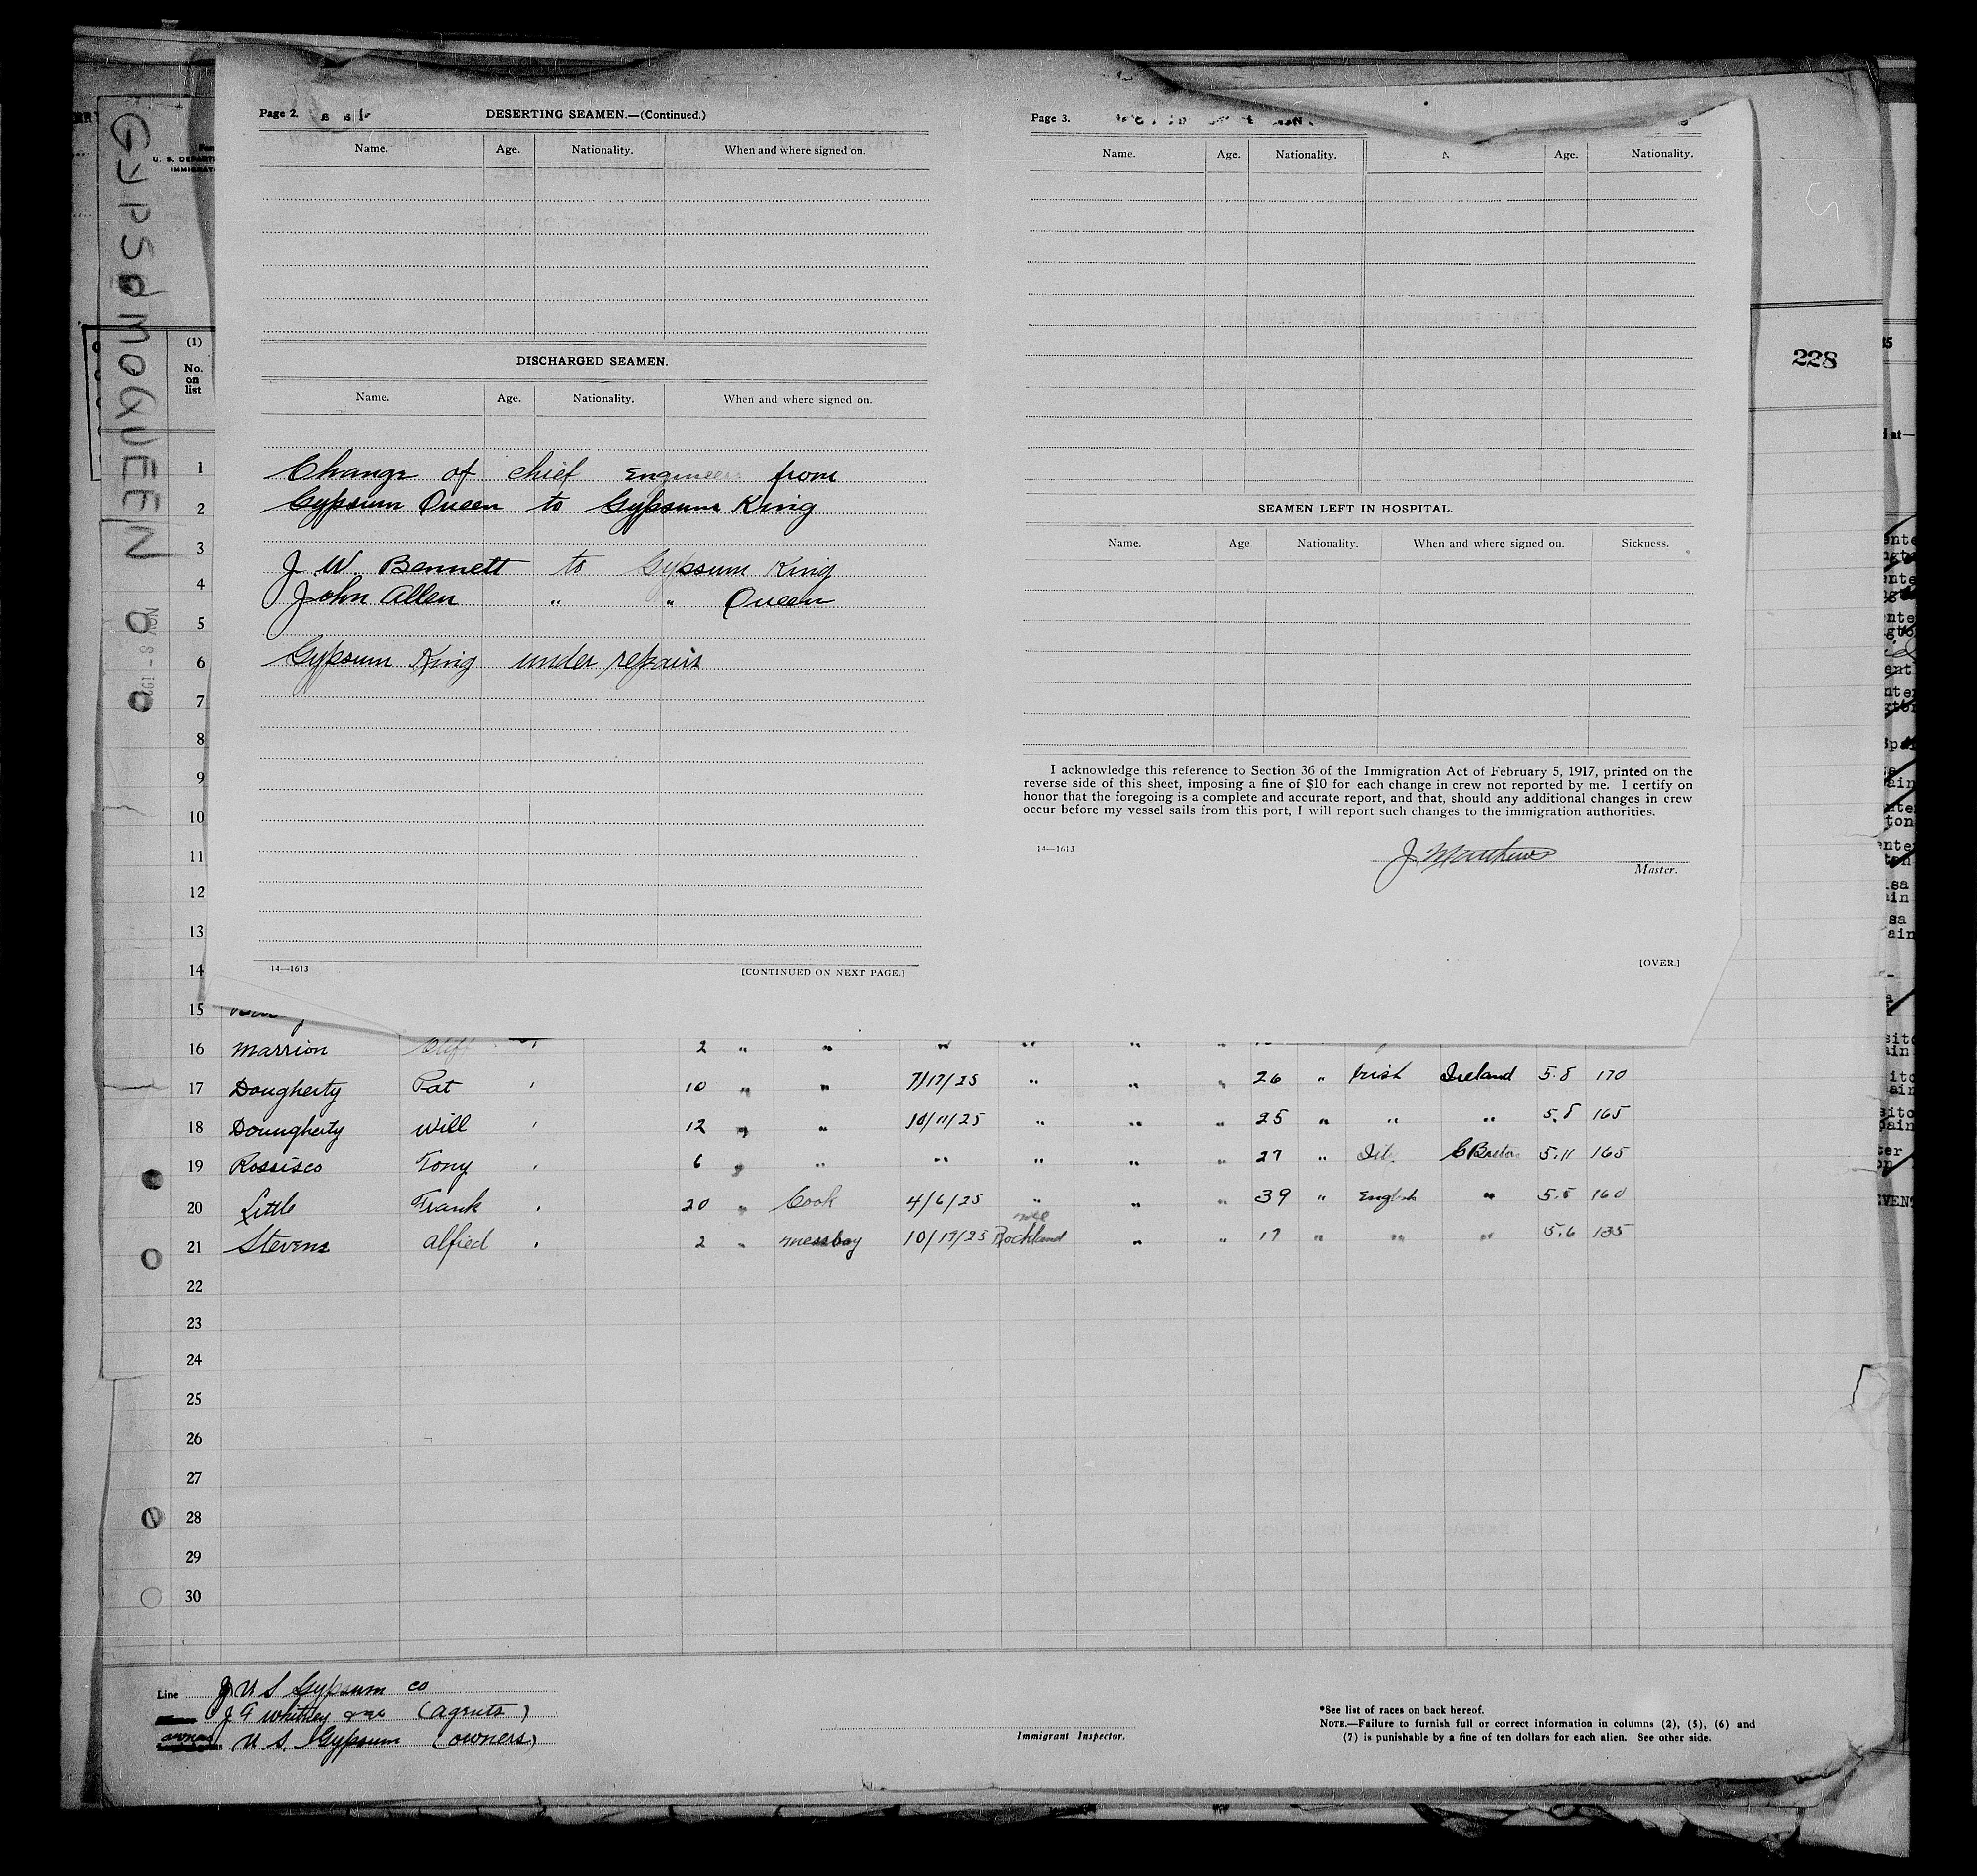 GYPSUM QUEEN
NOV 8 - 192
U. S. DEPART
IMMIGRAT
(1)
No.
on
list
228
Page 2.
DESERTING SEAMEN.—(Continued.)
Name. Age. Nationality. When and where signed on.
DISCHARGED SEAMEN.
Name. Age. Nationality. When and where signed on.
Change of chief Engineer from
Gypsum Queen to Gypsum King
J W. Bennett to Gypsum King
John Allen " " Queen
Gypsum King under repairs
14—1613
[CONTINUED ON NEXT PAGE.]
Page 3.
Name. Age. Nationality. Age. Nationality.
SEAMEN LEFT IN HOSPITAL.
Name. Age Nationality. When and where signed on. Sickness.
I acknowledge this reference to Section 36 of the Immigration Act of February 5, 1917, printed on the
reverse side of this sheet, imposing a fine of $10 for each change in crew not reported by me. I certify on
honor that the foregoing is a complete and accurate report, and that, should any additional changes in crew
occur before my vessel sails from this port, I will report such changes to the immigration authorities.
14—1613
J. Matthews
Master.
[OVER.]
1
2
3
4
5
6
7
8
9
10
11
12
13
14
15
16 Marrion Cliff " 2 " " " " " "
17 Dougherty Pat ' 10 " " 7/17/25 " " " 26 " Irish Ireland 5.8 170
18 Doungherty Will ' 12 " " 10/11/25 " " " 25 " " " 5.8 165
19 Rossisco Tony ' 6 " " " " " " 27 " 5.11 165
20 Little Frank ' 20 " Cook 4/6/25 " " " 39 " English " 5.5 160
21 Stevens Alfied ' 2 " messboy 10/17/25 Rockland " " 17 " " " 5.6 135
22
23
24
25
26
27
28
29
30
Line J U S Gypsum co
J F Whitney & co (agents)
owners U. S. Gypsum (owners)
Immigrant Inspector.
*See list of races on back hereof.
NOTE.—Failure to furnish full or correct information in columns (2), (5), (6) and
(7) is punishable by a fine of ten dollars for each alien. See other side.